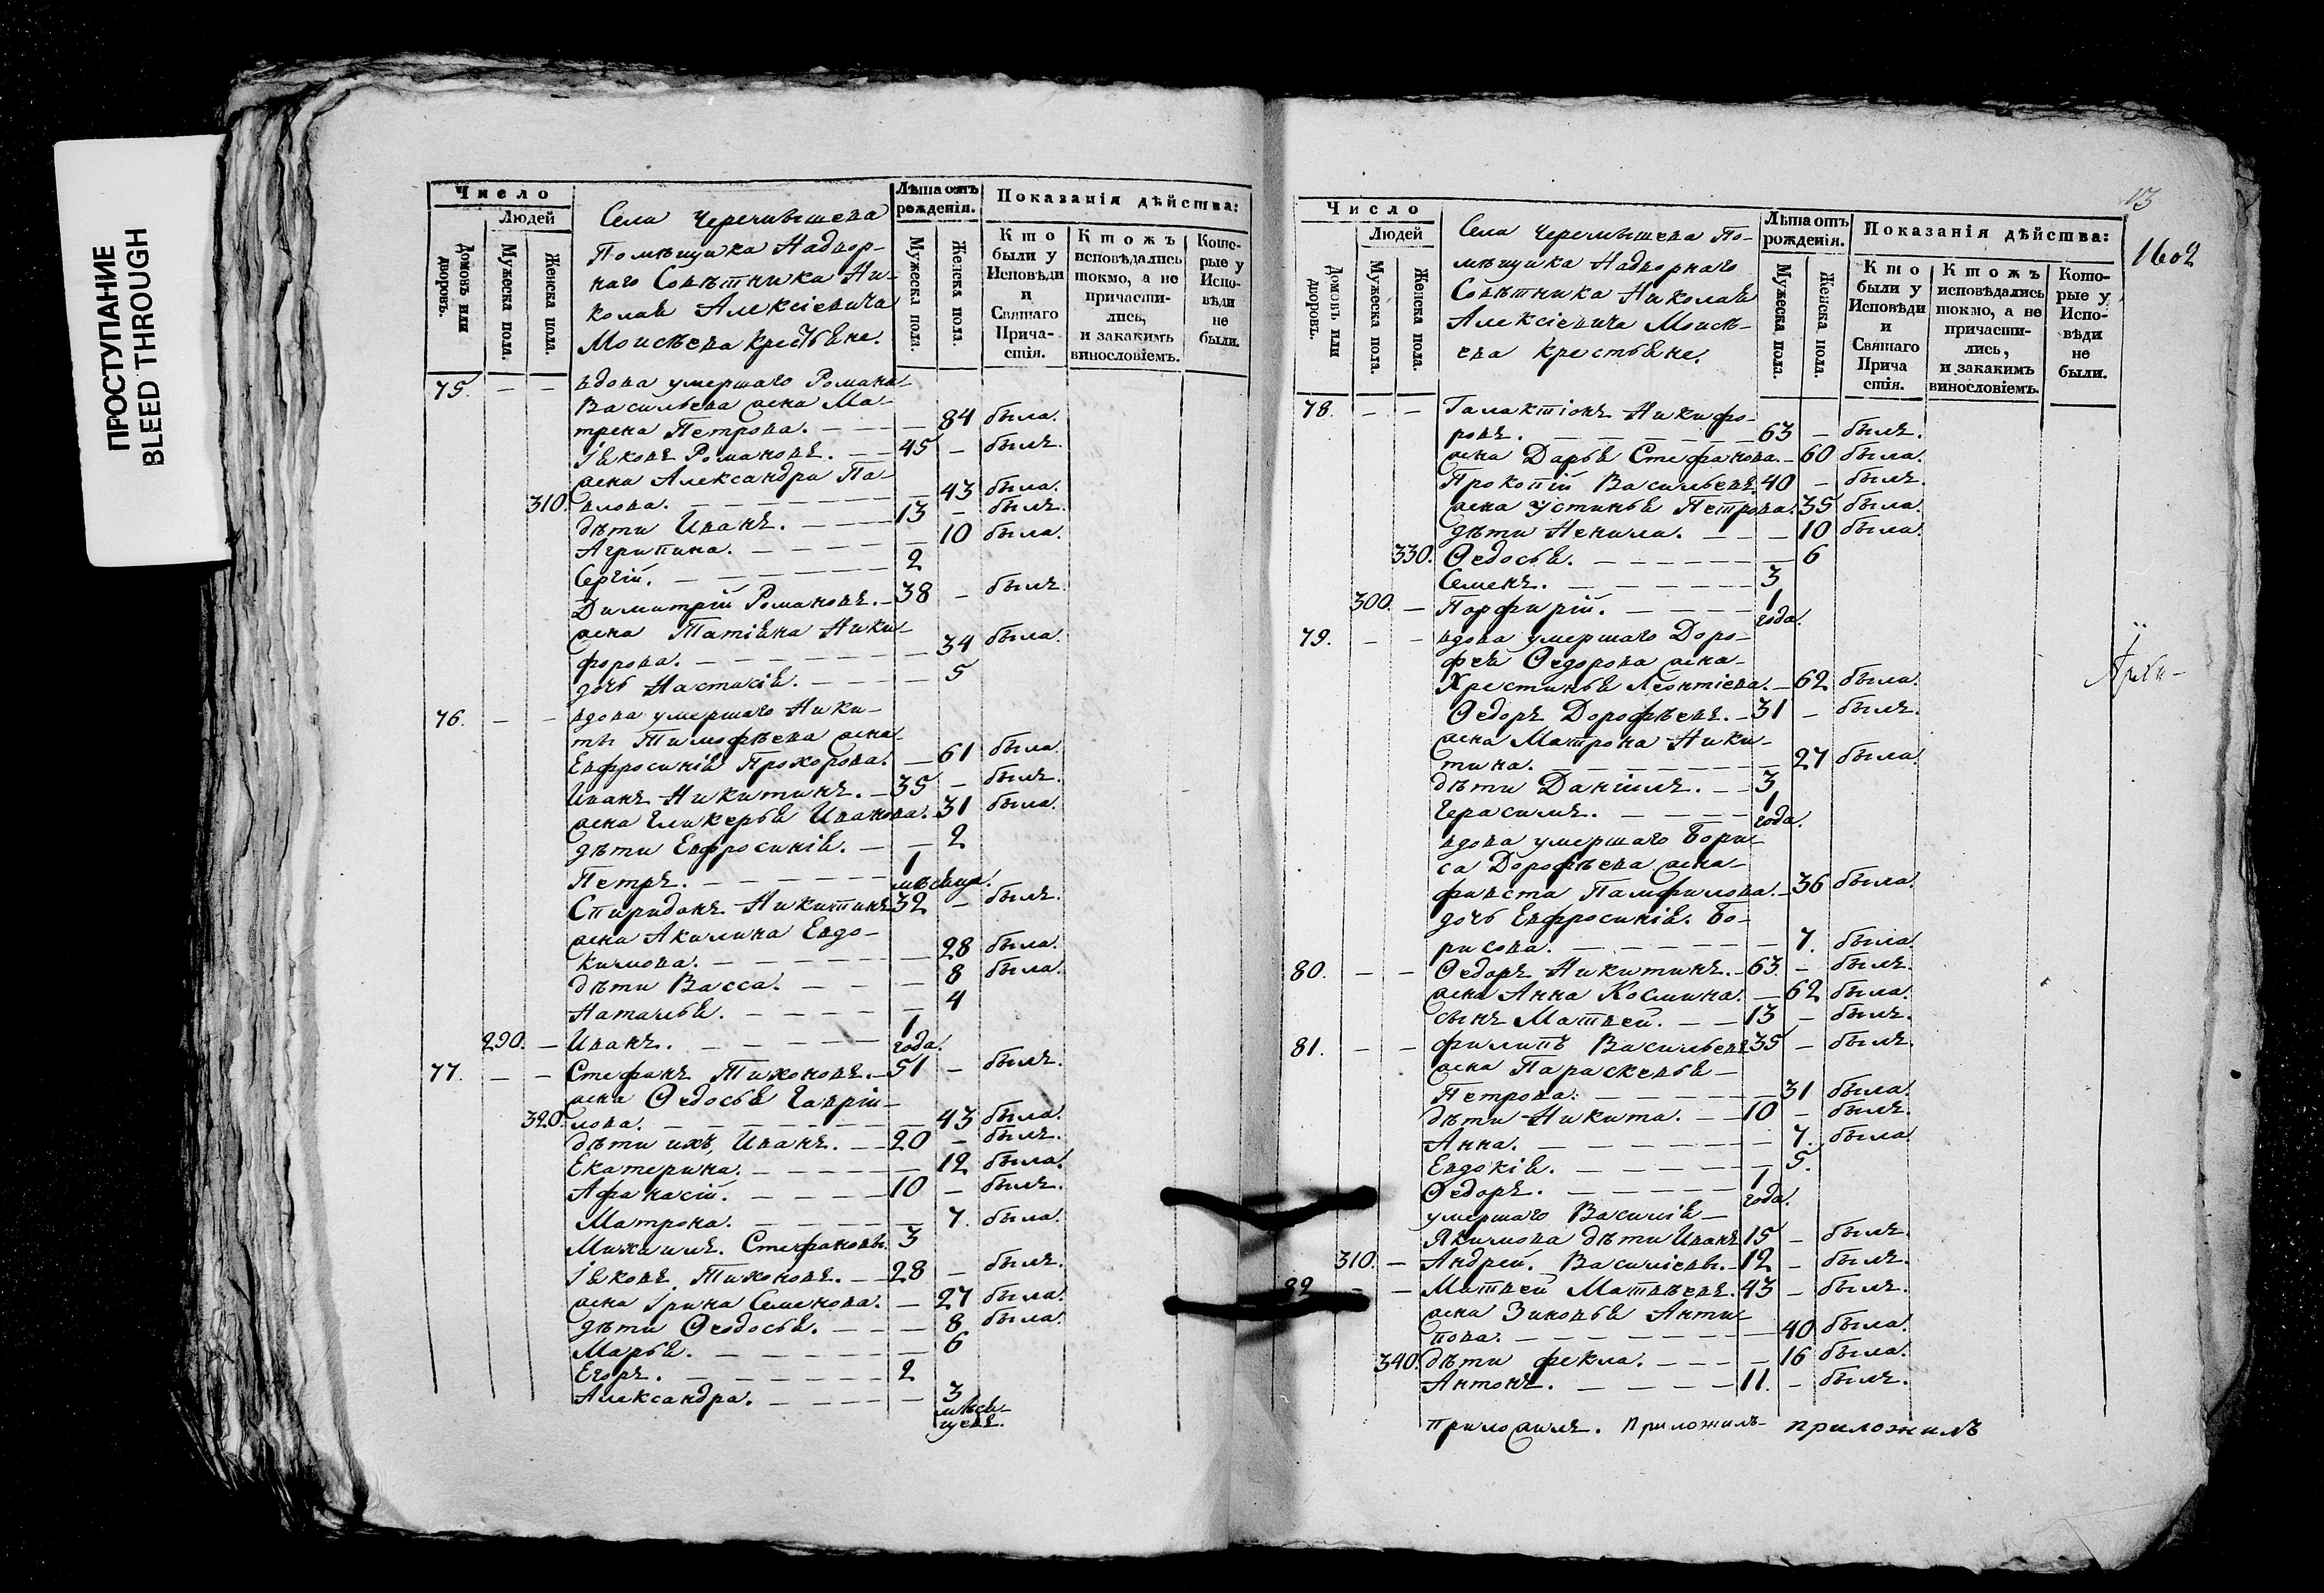 ПРОСТУПАНИЕ
BLEED THROUGH
Число
Людей
Домовъ или дворовъ.
Мужеска пола.
Женска пола.
Села Черемышева
Помѣщика Надвор-
наго Совѣтника Ни-
колая Алексіевича
Моисѣева крестьяне.
Лѣта отъ рожденія.
Мужеска пола.
Женска пола.
Показанія дѣйства:
Кто были у Исповѣди и Святаго Прича- стія.
Ктожъ исповѣдались токмо, а не причасти- лись, и закакимъ винословіемъ.
Кото- рые у Испо- вѣди не были.
75. — — вдова умершаго Романа
Васильева жена Ма-
трена Петрова. — 84 была.
Іяковъ Романовъ. 45 — былъ.
жена Александра Па-
310. влова. — 43 была.
дѣти Иванъ. 13 — былъ.
Агрипина. — 10 была.
Сергій. 2
Димитрій Романовъ. 38 — былъ.
жена Татіяна Ники-
форова. — 34 была.
дочь Настасія. — 5
76. — — вдова умершаго Ники-
ты Тимофѣева жена
Евфросинія Прохорова. — 61 была.
Иванъ Никитинъ. 35 — былъ.
жена Гликерья Иванова. 31 была.
дѣти Евфросинія. — 2
Петръ. 1 мѣсяца.
Спиридонъ Никитинъ 32 — былъ.
жена Акилина Евдо-
кимова. — 28 была.
дѣти Васса. — 8 была.
Наталья. — 4
290. — Иванъ. 1 года.
77. — — Стефанъ Тихоновъ. 51 — былъ.
жена Ѳедосья Гаврии-
320. лова. — 43 была.
дѣти ихъ, Иванъ. 20 — былъ.
Екатерина. — 12 была.
Афанасій. 10 — былъ.
Матрона. — 7. была.
Михаилъ. Стефановы. 3
Іяковъ Тихоновъ. 28 — былъ.
жена Ірина Семенова. — 27 была.
дѣти Ѳеодосья. — 8 была.
Марья. — 6
Егоръ. 2
Александра. — 3 мѣся- цевъ.
13
1602
Число
Людей
Домовъ или дворовъ.
Мужеска пола.
Женска пола.
Села Черемышева По-
мѣщика Надворнаго
Совѣтника Николая
Алексіевича Моисѣ-
ева крестьяне.
Лѣта отъ рожденія.
Мужеска пола.
Женска пола.
Показанія дѣйства:
Кто были у Исповѣди и Святаго Прича стія.
Ктожъ исповѣдались токмо, а не причасти- лись, и закакимъ винословіемъ.
Кото- рые у Испо- вѣди не были.
78. — — Галактіонъ Никифо-
ровъ. 63 — былъ.
жена Дарья Стефанова. — 60 была.
Прокопій Васильевъ 40 — былъ.
жена Устинья Петрова. 35 была.
дѣти Ненила. — 10 была.
330. Ѳедосья. — 6
Семенъ. 3
300. — Порфирій. 1 года.
79. — — вдова умершаго Доро-
фея Ѳедорова жена
Христинья Леонтіева. — 62 была.
Ѳедоръ Дорофѣевъ. 31 — былъ.
жена Матрона Ники-
тина. — 27 была.
дѣти Даніилъ. 3
Герасимъ. 1 года.
вдова умершаго Бори-
са Дорофѣева жена
Фавста Памфилова. — 36 была.
дочь Евфросинія. Бо-
рисова. — 7. была.
80. — — Ѳедоръ Никитинъ. 63. — былъ.
жена Анна Космина. — 62 была.
сынъ Матвей. 13 — былъ.
81. — — Филипъ Васильевъ 35 — былъ.
жена Параскевья
Петрова. — 31 была.
дѣти Никита. 10 — былъ.
Анна. — 7. была.
Евдокія. — 5.
Ѳедоръ. 1 года.
умершаго Василія
Якимова дѣти Иванъ 15 — былъ.
310. — Андрей. Василіевы. 12 — былъ.
82 — — Матвей Матвѣевъ. 43 — былъ.
жена Зиновья Анти-
пова. — 40 была.
340. дѣти Фекла. — 16 была.
Антонъ. 11. — былъ.
приложилъ. приложилъ приложилъ